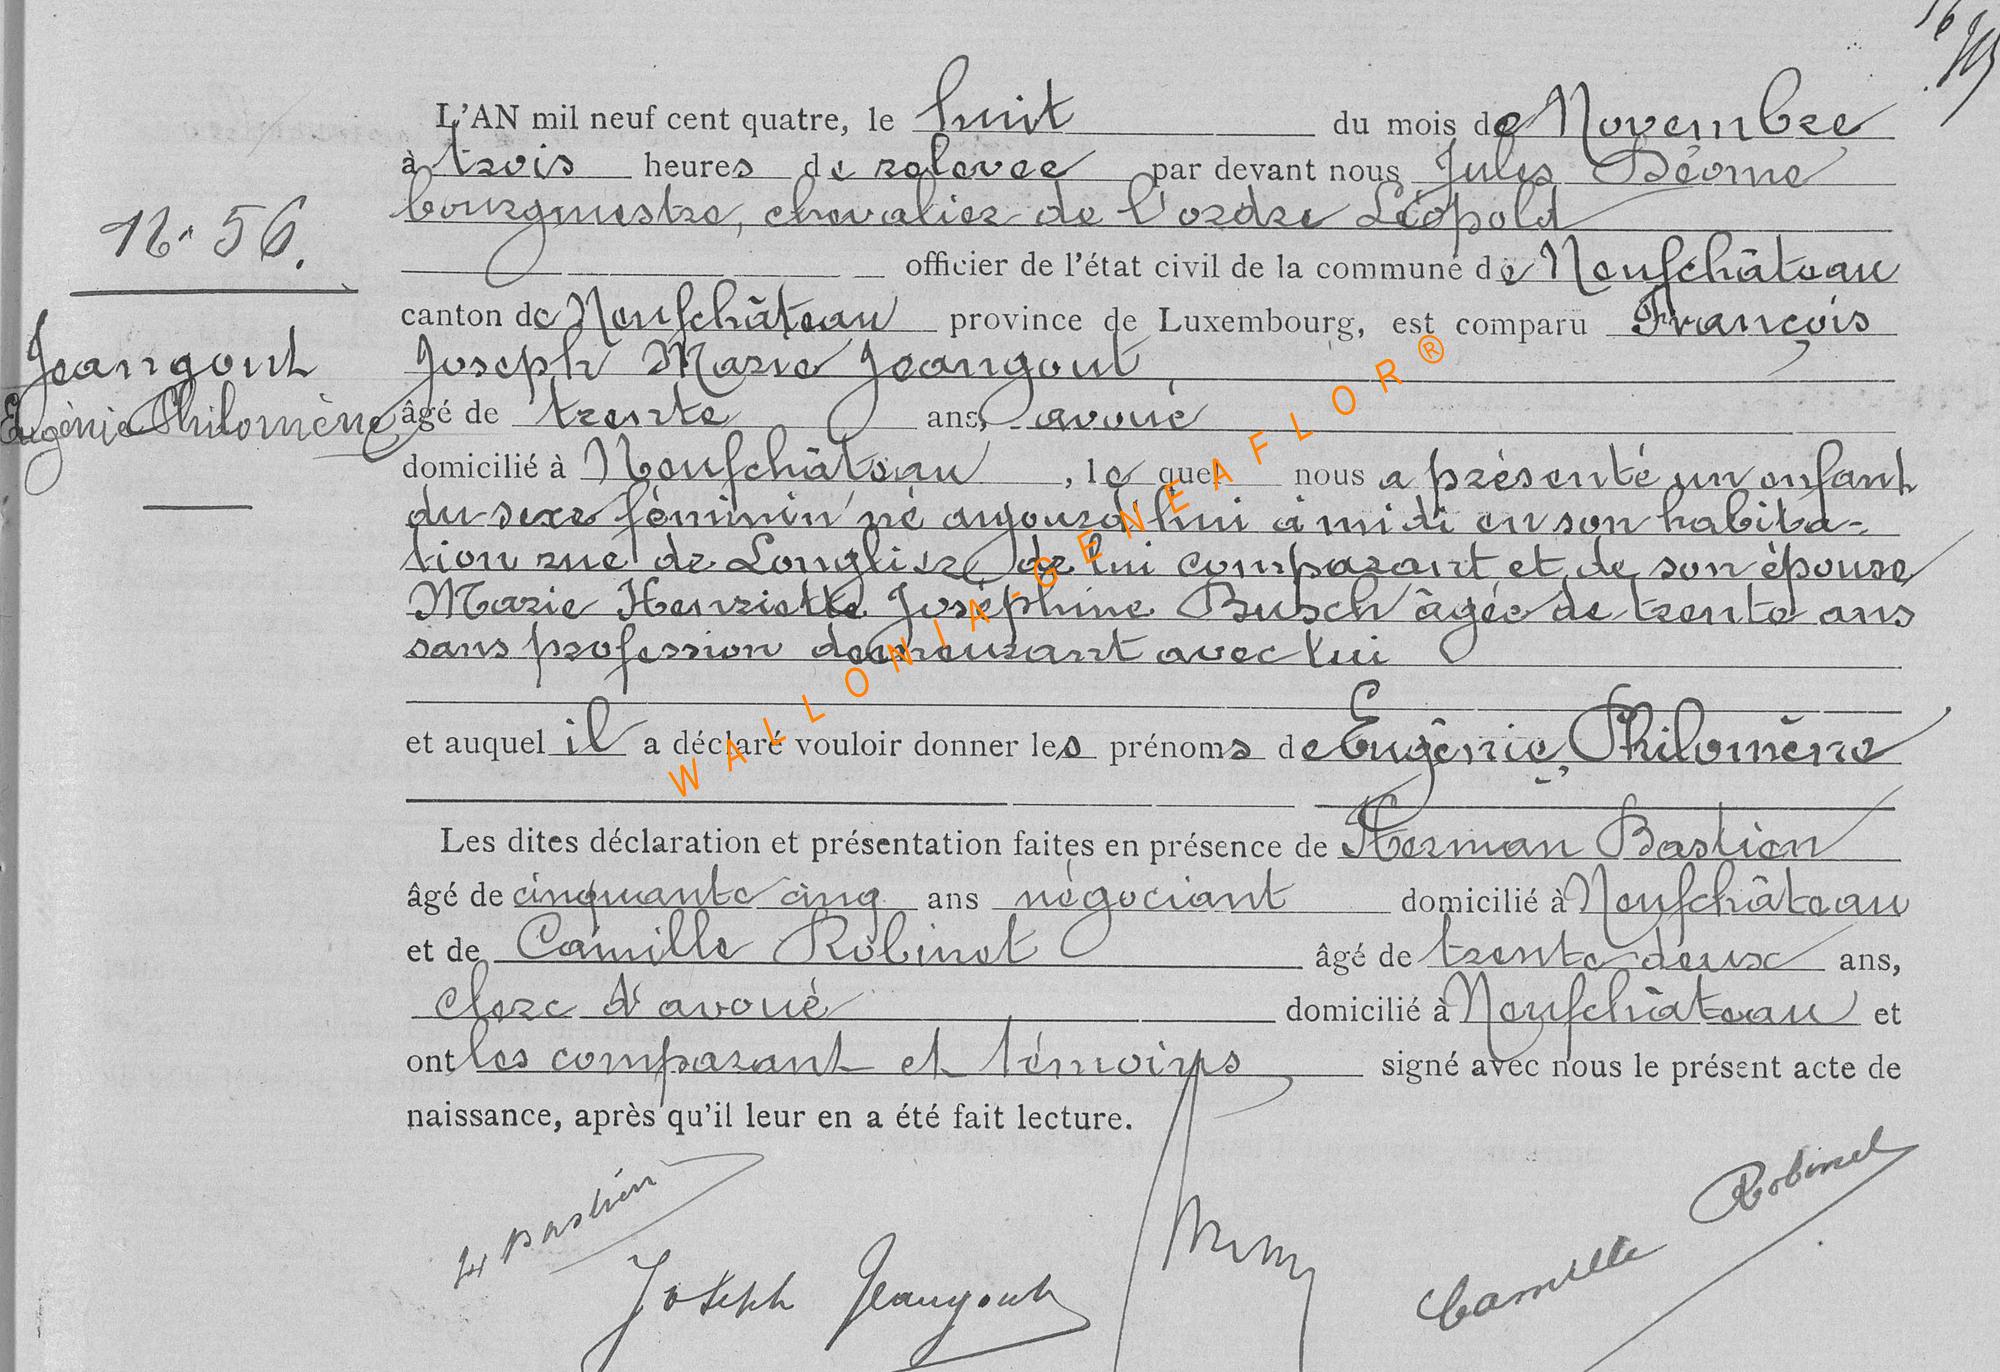 L'AN mil neuf cent quatre, le huit du mois de Novembre
à trois heures de relevee par devant nous Jules Déome
bourgmestre, chevalier de l'ordre Léopold
officier de l'état civil de la commune de Neufchâteau
canton de Neufchâteau province de Luxembourg, est comparu François
Joseph Marie Jeangout
âgé de trente ans, avoué
domicilié à Neufchâteau, le quel nous a présenté un enfant
du sexe féminin né aujourd'hui à midi en son habita-
tion rue de Longlier, de lui comparant et de son épouse
Marie Henriette Joséphine Busch âgée de trente ans
sans profession demeurant avec lui
et auquel il a déclaré vouloir donner les prénoms de Eugénie, Philomène
Les dites déclaration et présentation faites en présence de Herman Bastien
âgé de cinquante cinq ans négociant domicilié à Neufchâteau
et de Camille Robinet âgé de trente deux ans,
clerc d'avoué domicilié à Neufchâteau et
ont les comparant et témoins signé avec nous le présent acte de
naissance, après qu'il leur en a été fait lecture.
N. 56.
Jeangout
Eugénie Philomène
H Bastien
Joseph Jeangout
Camille Robinet
WALLONIA-GENEAFLOR®